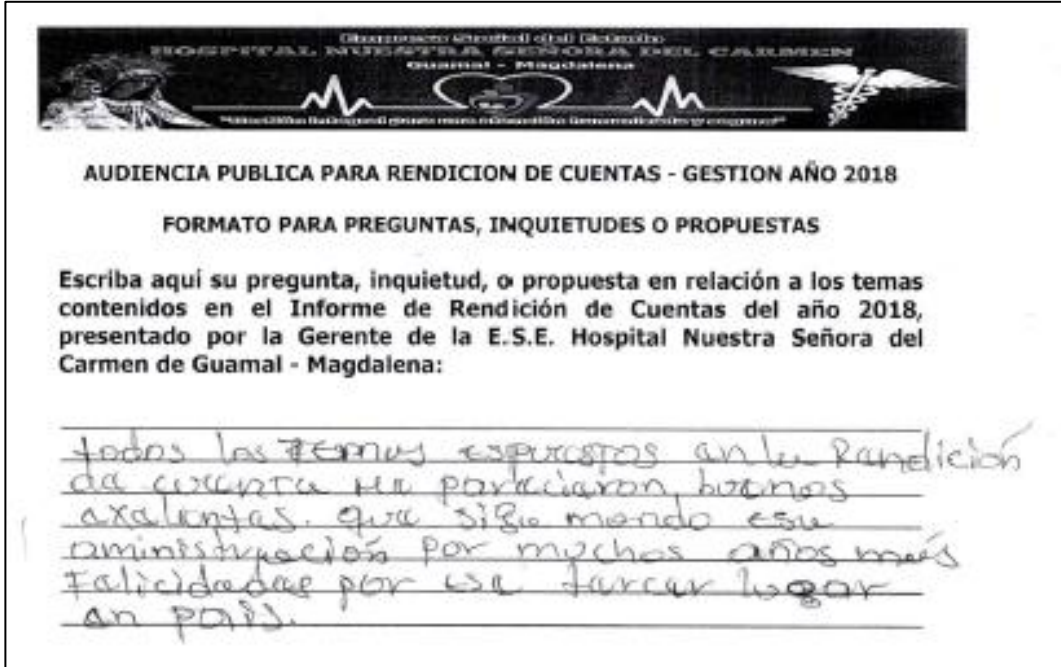 HOSPITAL NUESTRA SEÑORA DEL CARMEN
Guamal - Magdalena
AUDIENCIA PUBLICA PARA RENDICION DE CUENTAS - GESTION AÑO 2018
FORMATO PARA PREGUNTAS, INQUIETUDES O PROPUESTAS
Escriba aquí su pregunta, inquietud, o propuesta en relación a los temas
contenidos en el Informe de Rendición de Cuentas del año 2018,
presentado por la Gerente de la E.S.E. Hospital Nuestra Señora del
Carmen de Guamal - Magdalena:
todos los temas espuestos en la Rendición
de cuenta me pareciaron buenos
axelentes. que siga mondo esa
aministración por muchos años más
Felicidades por ese tercer lugar
en país.